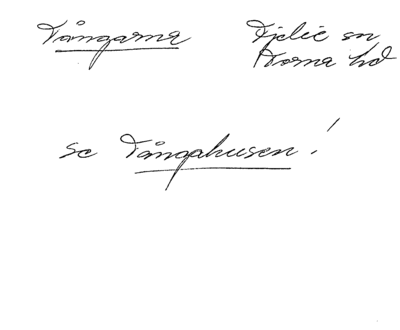 Tångarna Fjelie sn
Torna hd
se Tångahusen!